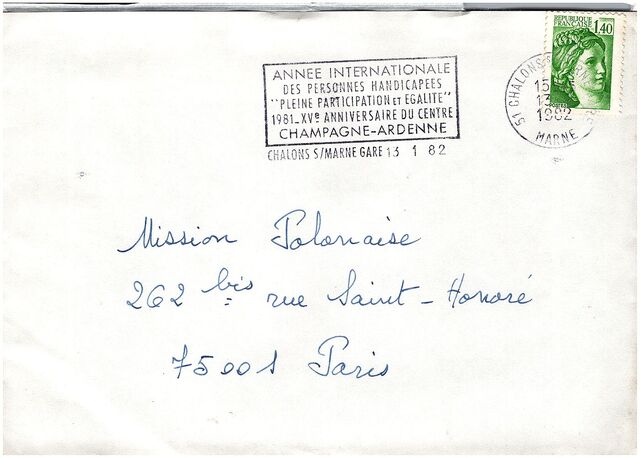 REPUBLIQUE
FRANCAISE
1,40
ANNEE INTERNATIONALE
DES PERSONNES HANDICAPEES
"PLEINE PARTICIPATION ET EGALITE"
1981_XVe ANNIVERSAIRE DU CENTRE
CHAMPAGNE-ARDENNE
CHALONS S/MARNE GARE 13 1 82
51 CHALONS
15
13
1982
MARNE
Mission Polonaise
262 bis rue Saint-Honoré
75001 Paris